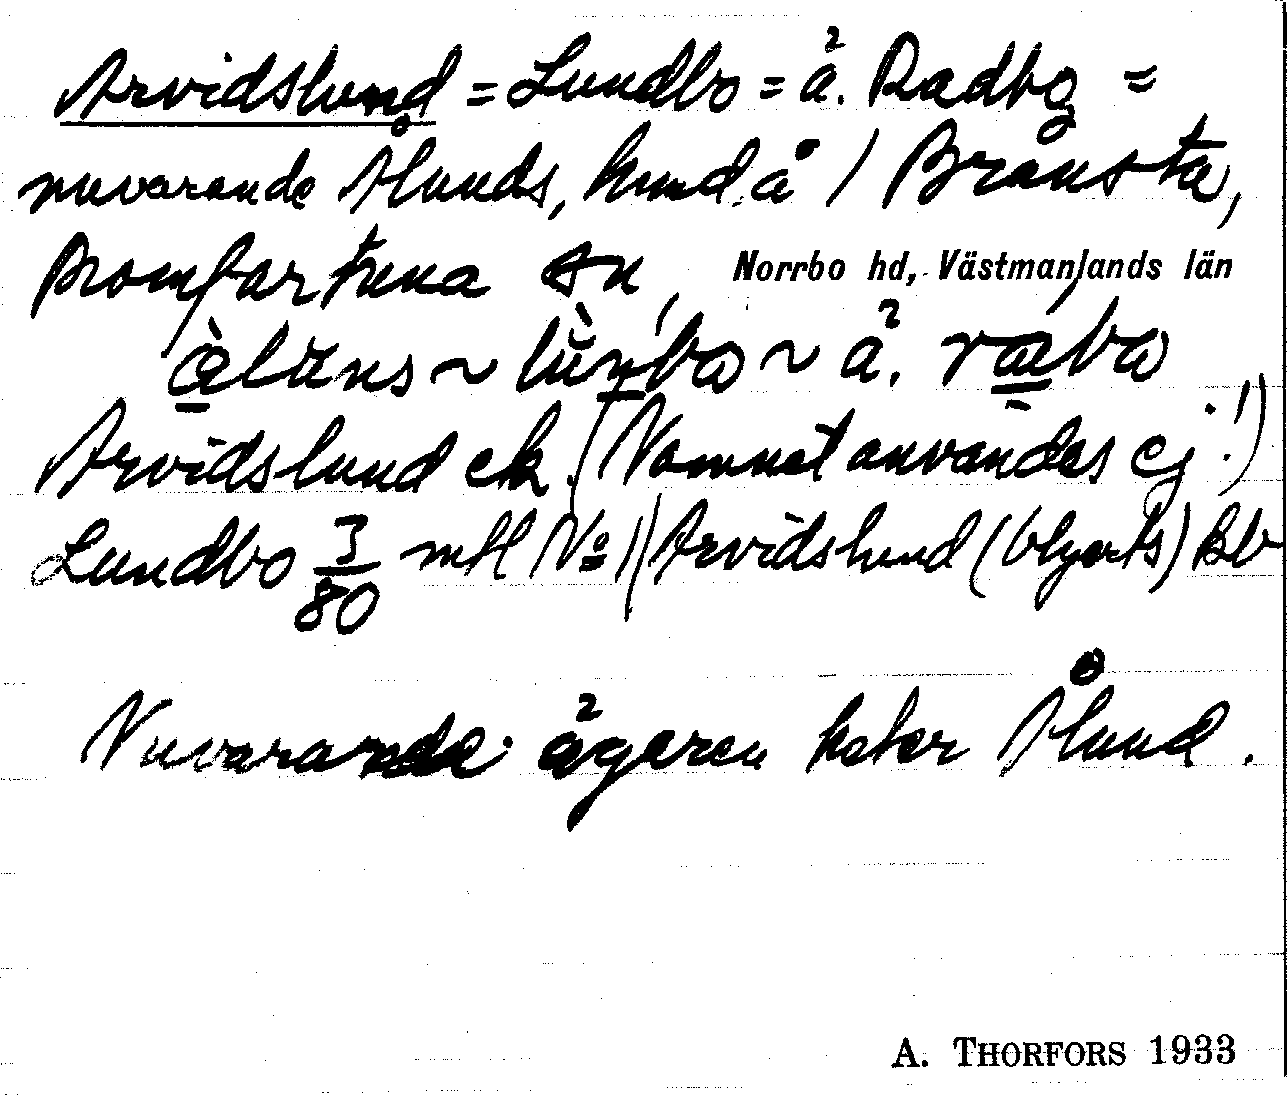 Arvidslund = Lundbo = ä. Radbo =
nuvarande Ålunds, hmd å / Brånsta,
Romfartuna sn, Norrbo hd, Västmanlands län
ä. 
Arvidslund ek. (Namnet användes ej!)
Lundbo 3/80 mtl No 1 (Arvidslund (blyerts) Bb
Nuvarande ägaren heter Ålund.
A. THORFORS 1933